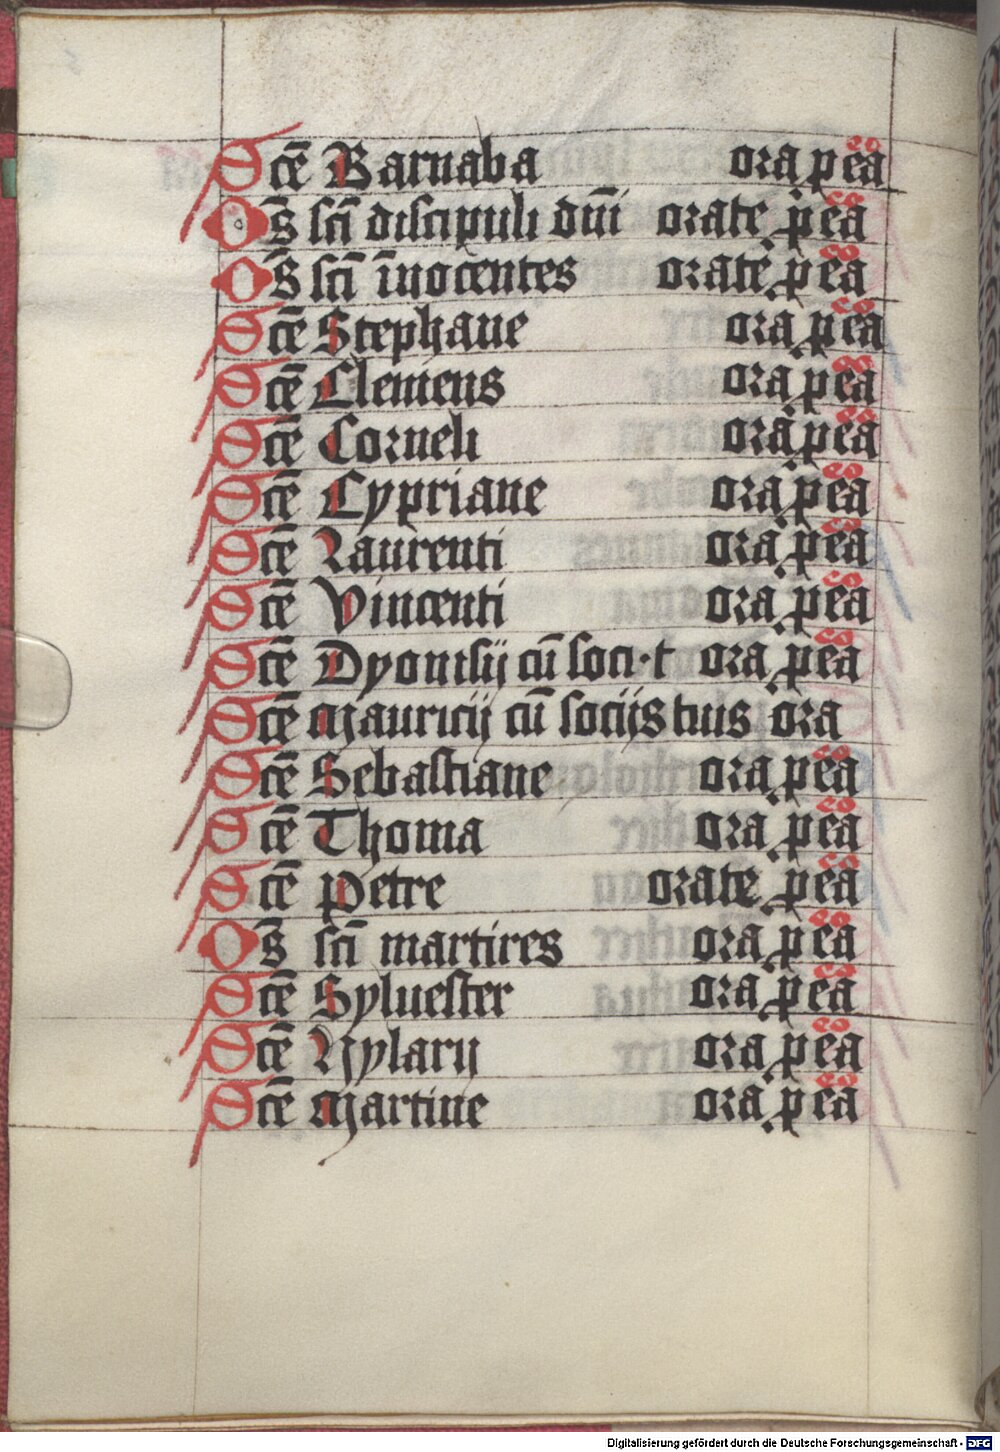 Scē Barnaba ora p eā
Os̄ scī discipuli dnī orate p eā
Os̄ scī īnocentes orate p eā
Scē Stephane ora p eā
Scē Clemens ora p eā
Scē Corneli ora p eā
Scē Cypriane ora p eā
Scē Laurenti ora p eā
Scē Vincenti ora p eā
Scē Dyonisij cū soci·t ora p eā
Scē Mauricij cū socijs tuis ora
Scē Sebastiane ora p eā
Scē Thoma ora p eā
Scē Petre orate p eā
Os̄ scī martires ora p eā
Scē Sylvester ora p eā
Scē Hylarij ora p eā
Scē Martine ora p eā
Digitalisierung gefördert durch die Deutsche Forschungsgemeinschaft - DFG